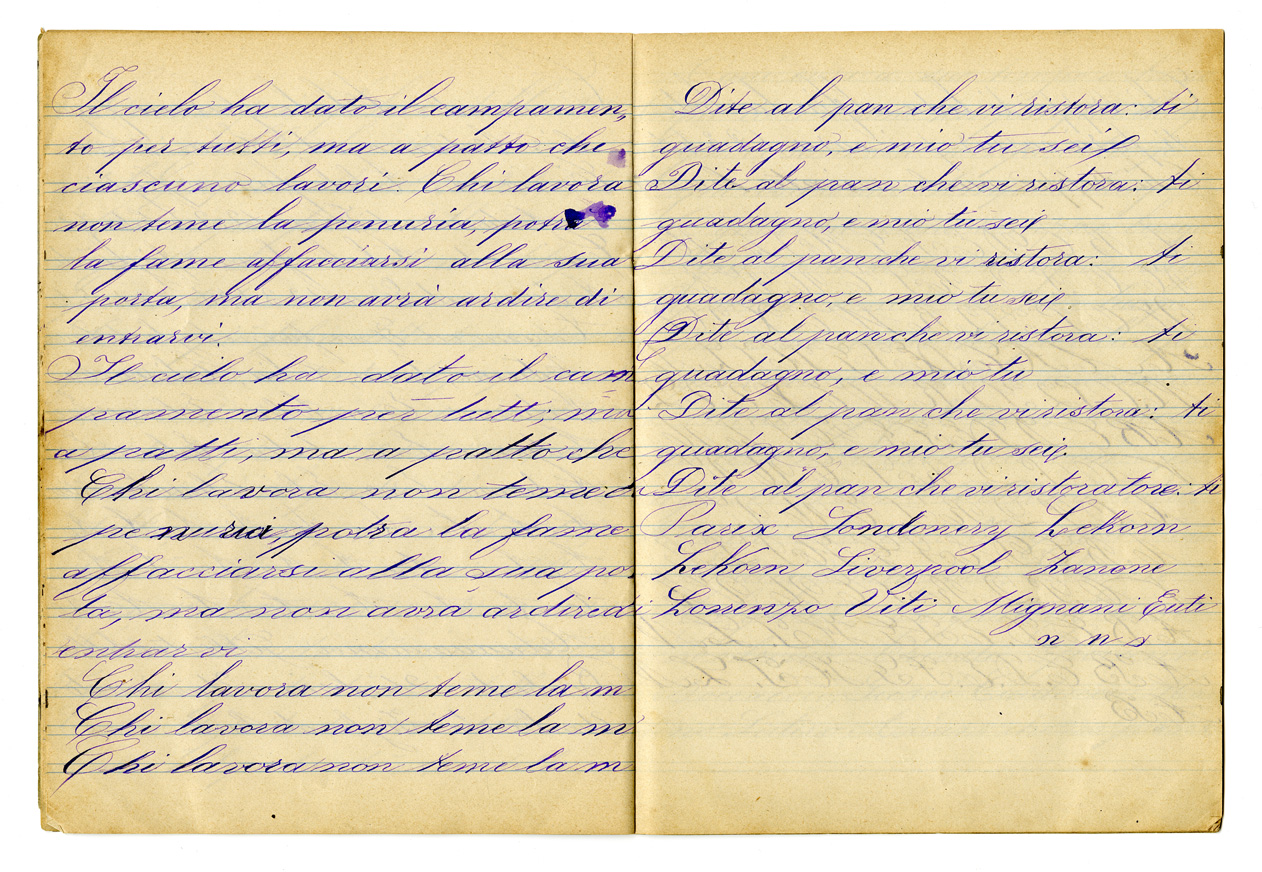 Il cielo ha dato il campamen,
to per tutti, ma a patto che
ciascuno lavori. Chi lavora
non teme la penuria, potrà
la fame affacciarsi alla sua
porta, ma non avrà ardire di
entrarvi.
Il cielo ha dato il cam
pamento per tutti; ma
a patti, ma a patto che
Chi lavora non teme
penuria potra la fame
affacciarsi alla sua po
ta, ma non avrà ardire di
entrarvi
Chi lavora non teme la m
Chi lavora non teme la m
Chi lavora non teme la m
Dite al pan che vi ristora: ti
guadagno, e mio tu sei
Dite al pan che vi ristora: ti
guadagno, e mio tu sei
Dite al pan che vi ristora: ti
guadagno, e mio tu sei
Dite al pan che vi ristora: ti
guadagno, e mio tu
Dite al pan che vi ristora: ti
guadagno, e mio tu sei
Dite al pan che vi ristoratore: ti
Parix Londonery LeKorn
LeKorn Liverpool Zanone
Lorrenzo Viti Mignani Euti
n n s